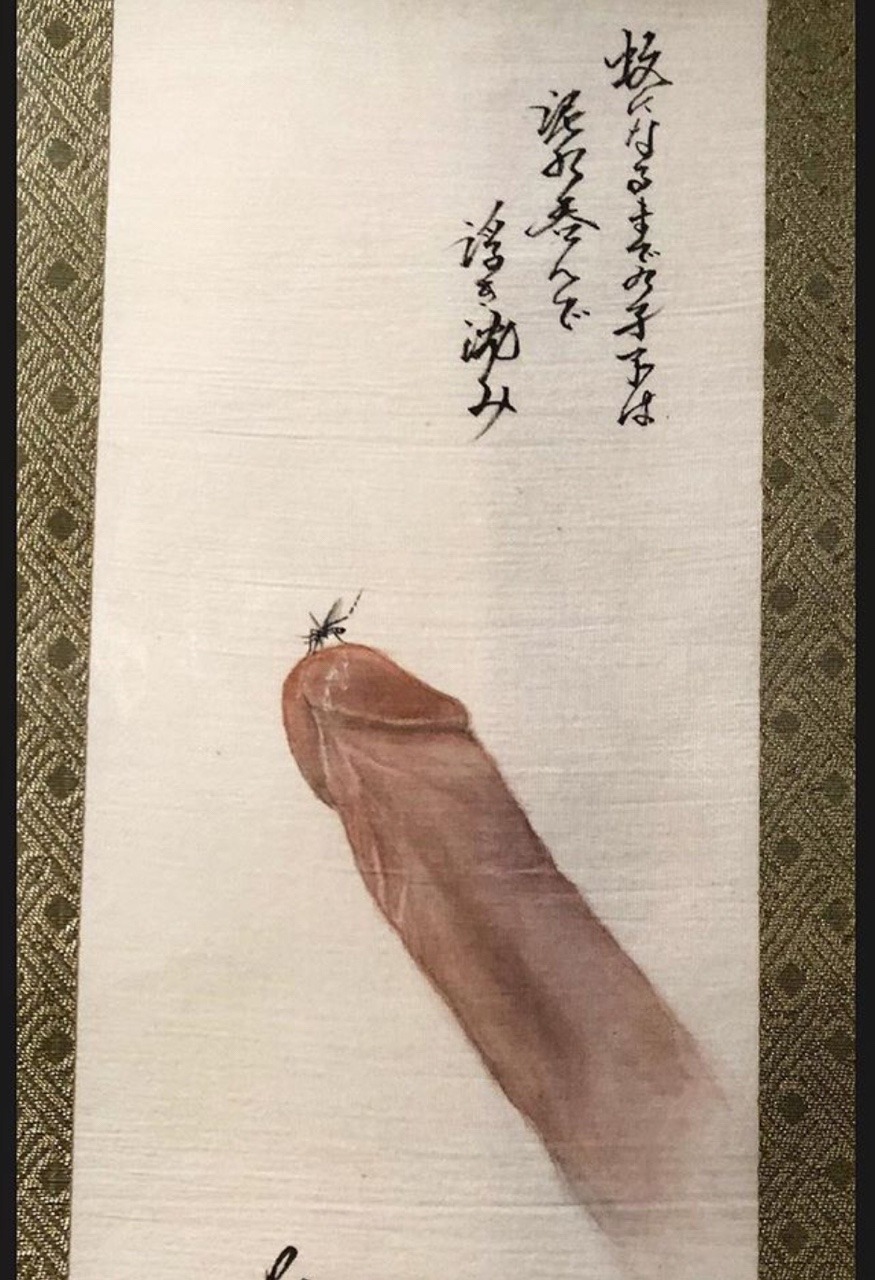 蚊になるまでの孑孓は
泥水呑んで
浮き沈み